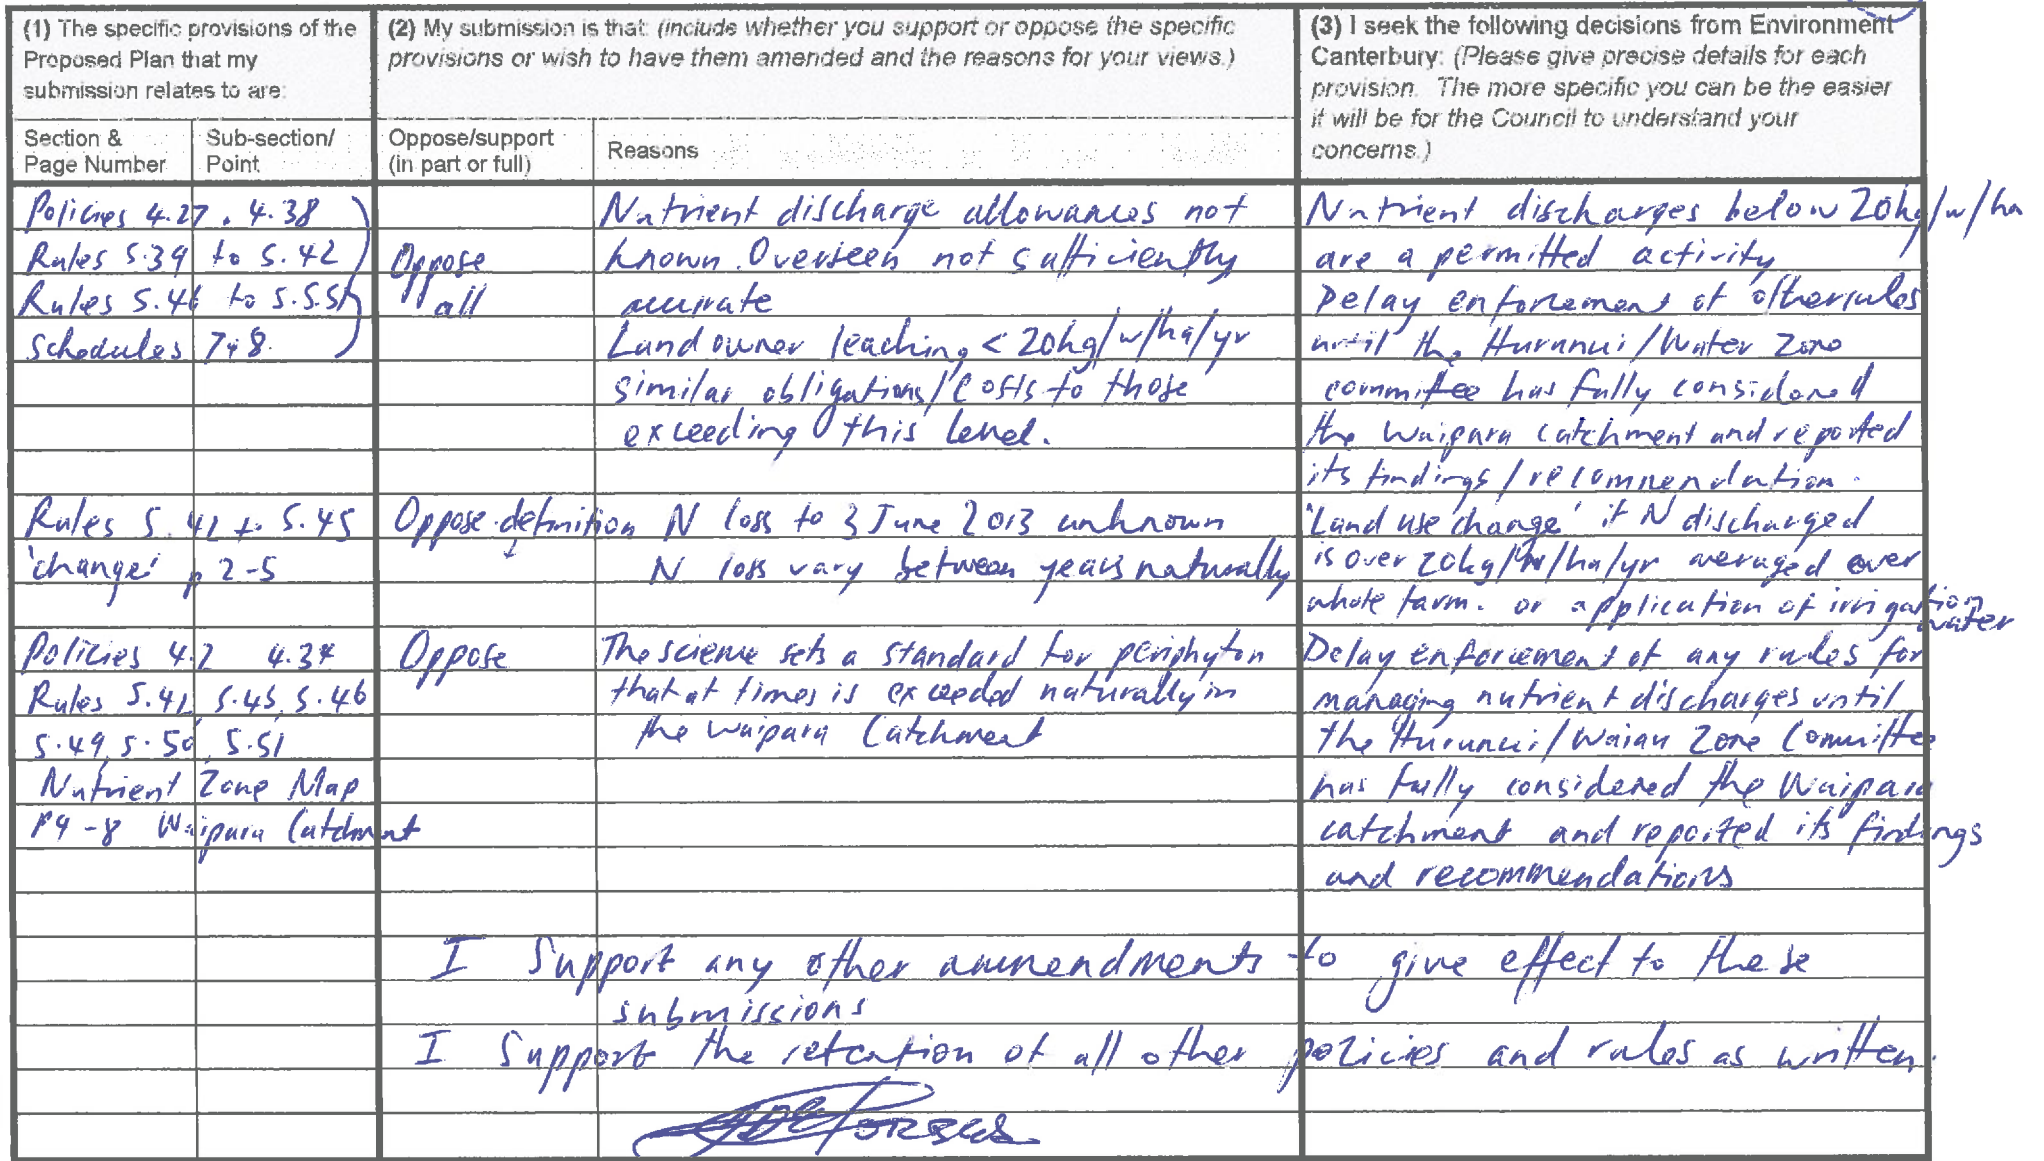 (1) The specific provisions of the
Proposed Plan that my
submission relates to are:
Section &
Page Number
Sub-section/
Point
(2) My submission is that: (include whether you support or oppose the specific
provisions or wish to have them amended and the reasons for your views.)
Oppose/support
(in part or full)
Reasons
(3) I seek the following decisions from Environment
Canterbury: (Please give precise details for each
provision. The more specific you can be the easier
it will be for the Council to understand your
concerns.)
Policies 4.27, 4.38
Rules 5.39 to 5.42
Rules 5.46 to 5.5.51
Schedules 7+8.
Oppose
all
Nutrient discharge allowances not
known. Overseen not sufficiently
accurate
Land owner leaching < 20kg/w/ha/yr
similar obligations/Costs to those
exceeding this level.
Nutrient discharges below 20kg/w/ha
are a permitted activity
Delay enforcement of other rules
until the Hurunui/Water Zone
committee has fully considered
the Waipara catchment and reported
its findings/recommendation.
Rules 5.41 to 5.45
'change' p 2-5
Oppose definition
N loss to 3 June 2013 unknown
N loss vary between years naturally
'Land use change' if N discharged
is over 20kg/ /ha/yr averaged over
whole farm. or application of irrigation
water
Policies 4.2 4.34
Rules 5.41 5.45, 5.46
5.49, 5.50, 5.51
Nutrient Zone Map
P4-8 Waipara Catchment
Oppose
The science sets a standard for periphyton
that at times is exceeded naturally in
the Waipara Catchment
Delay enforcement of any rules for
managing nutrient discharges until
the Hurunui/Waiau Zone Committee
has fully considered the Waipara
catchment and reported its findings
and recommendations
I Support any other ammendments to give effect to these
submissions
I Support the retention of all other policies and rules as written.